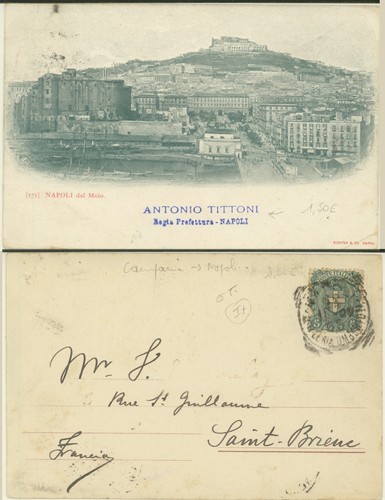 [171] NAPOLI dal Molo.
ANTONIO TITTONI
Regia Prefettura - NAPOLI
1,50€
Campania → Napoli
OK
It
Mr. S.
Rue St Guillaume
Saint-Brieuc
Francia